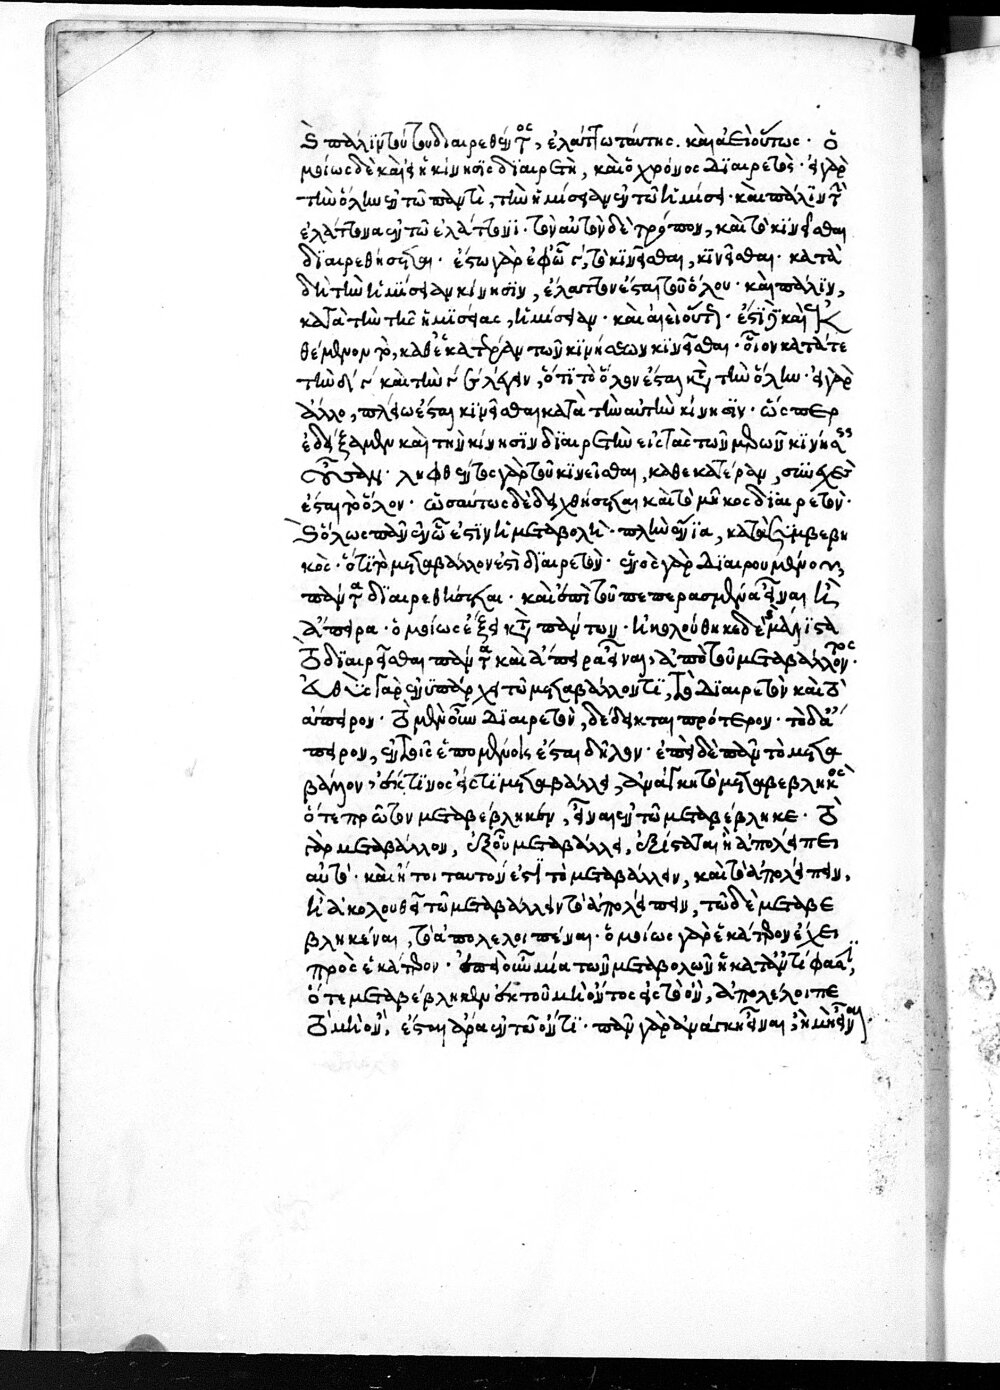 καὶ πάλιν τούτου διαιρεθέντος, ἐλάττω ταύτης. καὶ ἀεὶ οὕτως· ὁ
μοίως δὲ καὶ εἰ ἡ κίνησις διαιρετὴ, καὶ ὁ χρόνος διαιρετὸς· εἰ γὰρ
τὴν ὅλην ἐν τῷ παντὶ, τὴν ἡμίσειαν ἐν τῷ ἡμίσει· καὶ πάλιν τὴν
ἐλάττονα ἐν τῷ ἐλάττονι· τὸν αὐτὸν δὲ τρόπον, καὶ τὸ κινεῖσθαι
διαιρεθήσεται· ἔστω γὰρ ἐφ' ᾧ ς, τὸ κινεῖσθαι, κινεῖσθαι· κατὰ
δὴ τὴν ἡμίσειαν κίνησιν, ἔλαττον ἔσται τοῦ ὅλου· καὶ πάλιν,
κατὰ τὴν τῆς ἡμισείας, ἡμίσειαν· καὶ ἀεὶ οὕτως· ἔστι δὲ καὶ ἐκ
θέμενον τὸ, καθ' ἑκατέραν τῶν κινήσεων κινεῖσθαι· οἷον κατά τε
τὴν δς καὶ τὴν ςε λέγειν, ὅτι τὸ ὅλον ἔσται κατὰ τὴν ὅλην· εἰ γὰρ
ἄλλο, πλείω ἔσται κινεῖσθαι κατὰ τὴν αὐτὴν κίνησιν· ὥσπερ
ἐδείξαμεν καὶ τὴν κίνησιν διαιρετὴν εἰς τὰς τῶν μερῶν κινήσεις
οὖσαν· ληφθέντος γὰρ τοῦ κινεῖσθαι, καθ' ἑκατέραν, συνεχὲς
ἔσται τὸ ὅλον· ὡσαύτως δὲ δειχθήσεται καὶ τὸ μῆκος διαιρετὸν·
καὶ ὅλως πᾶν ἐν ᾧ ἐστιν ἡ μεταβολή· πλὴν ἔνια, κατὰ συμβεβη
κὸς· ὅτι τὸ μεταβάλλον ἐστὶ διαιρετόν· ἑνὸς γὰρ διαιρουμένου
πάντα διαιρεθήσεται· καὶ ἐπὶ τοῦ πεπερασμένα εἶναι ἢ
ἄπειρα· ὁμοίως ἕξει κατὰ πάντων· ἠκολούθηκε δὲ μάλιστα
τὸ διαιρεῖσθαι πάντα καὶ ἄπειρα εἶναι, ἀπὸ τοῦ μεταβάλλοντος·
εὐθὺς γὰρ ἐνυπάρχει τῷ μεταβάλλοντι, τὸ διαιρετὸν καὶ τὸ
ἄπειρον· τὸ μὲν οὖν διαιρετὸν, δέδεικται πρότερον· τὸ δ' ἄ
πειρον, ἐν τοῖς ἑπομένοις ἔσται δῆλον· ἐπεὶ δὲ πᾶν τὸ μετα
βάλλον, ἔκ τινος εἴς τι μεταβάλλει, ἀνάγκη τὸ μεταβεβληκὸς
ὅτε πρῶτον μεταβέβληκεν, εἶναι ἐν ᾧ μεταβέβληκε· τὸ
γὰρ μεταβάλλον, ἐξ οὗ μεταβάλλει, ἐξίσταται ἢ ἀπολείπει
αὐτό· καὶ ἤτοι ταυτόν ἐστι τὸ μεταβάλλειν, καὶ τὸ ἀπολείπειν,
ἢ ἀκολουθεῖ τῷ μεταβάλλειν τὸ ἀπολείπειν, τῷ δὲ μεταβε
βληκέναι, τὸ ἀπολελοιπέναι· ὁμοίως γὰρ ἑκάτερον ἔχει
πρὸς ἑκάτερον· ἐπεὶ οὖν μία τῶν μεταβολῶν ἡ κατ' ἀντίφασιν,
ὅτε μεταβέβληκεν ἐκ τοῦ μὴ ὄντος εἰς τὸ ὄν, ἀπολέλοιπε
τὸ μὴ ὄν, ἔσται ἄρα ἐν τῷ ὄντι· πᾶν γὰρ ἀνάγκη εἶναι, ἢ μὴ εἶναι